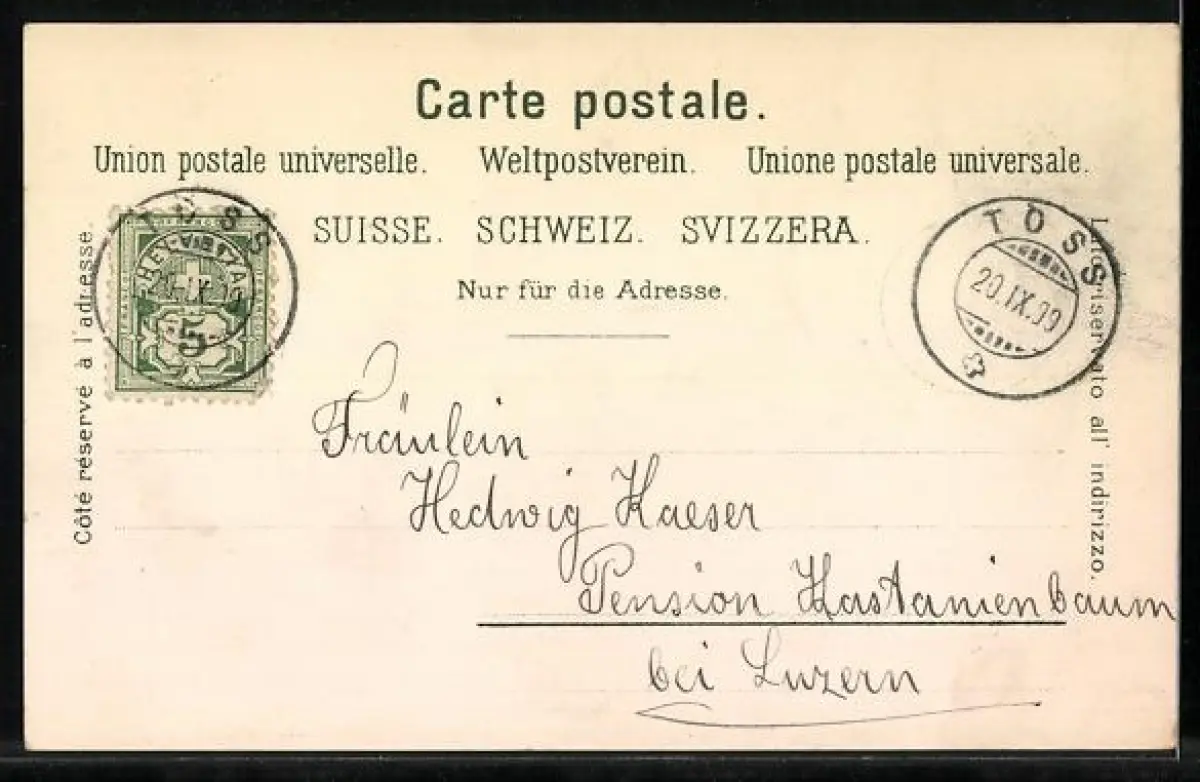 Carte postale.
Union postale universelle. Weltpostverein. Unione postale universale.
SUISSE. SCHWEIZ. SVIZZERA.
Nur für die Adresse.
Côté réservé à l'adresse.
Lato riservato all' indirizzo.
TÖSS
5
TÖSS
20.IX.99
Fräulein
Hedwig Kaeser
Pension Kastanienbaum
bei Luzern